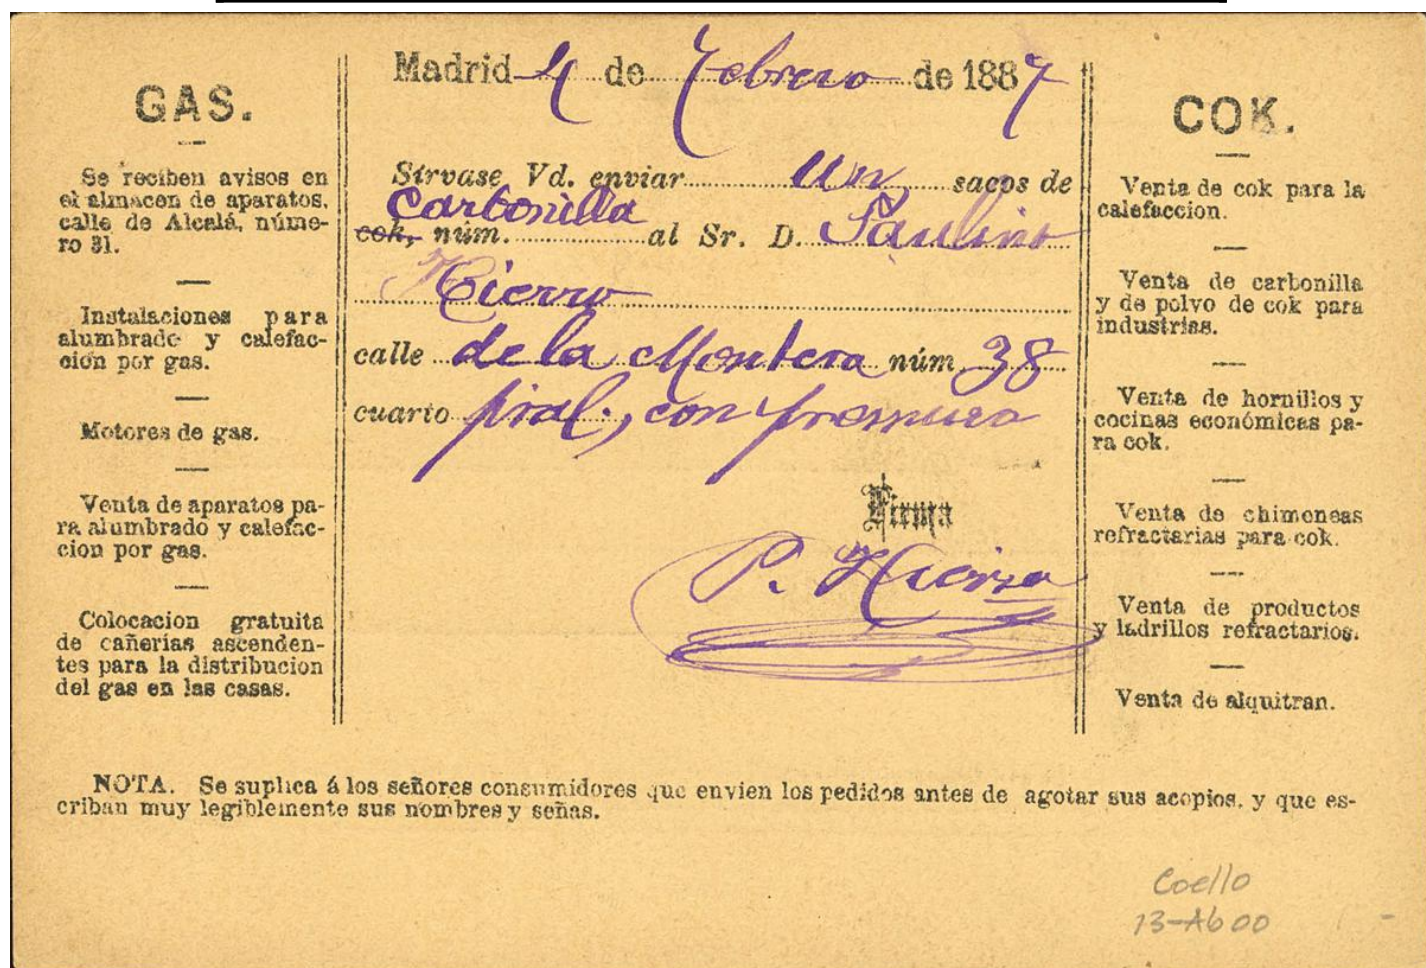 GAS.
Se reciben avisos en
el almacen de aparatos,
calle de Alcalá, núme-
ro 31.
Instalaciones para
alumbrado y calefac-
ción por gas.
Motores de gas.
Venta de aparatos pa-
ra alumbrado y calefac-
cion por gas.
Colocacion gratuita
de cañerias ascenden-
tes para la distribucion
del gas en las casas.
Madrid 4 de Febrero de 1887
Sírvase Vd. enviar Un sacos de
Carbonilla
cok, núm. al Sr. D. Paulino
Hierro
calle de la Montera núm. 38
cuarto pral., con premura
Firma
P. Hierro
COK.
Venta de cok para la
calefaccion.
Venta de carbonilla
y de polvo de cok para
industrias.
Venta de hornillos y
cocinas económicas pa-
ra cok.
Venta de chimeneas
refractarias para cok.
Venta de productos
y ladrillos refractarios.
Venta de alquitran.
NOTA. Se suplica á los señores consumidores que envien los pedidos antes de agotar sus acopios, y que es-
criban muy legiblemente sus nombres y señas.
Coello
13-Ab 00